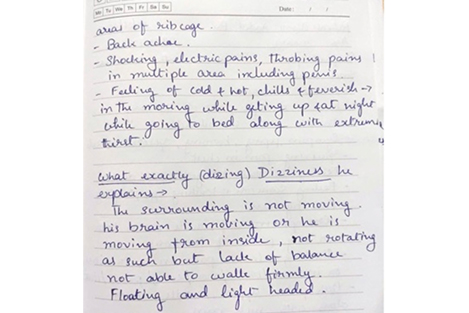 Mo Tu We Th Fr Sa Su Date: / /
areas of ribcage.
- Back achae.
- Shocking, electric pains, throbing pains
in multiple area including penis.
- Feeling of cold & hot, chills & feverish →
in the moring while geting up & at night
while going to bed along with extreme
thirst.
What exactly (dizing) Dizziness he
explains →
The surrounding is not moving
his brain is moving or he is
moving from inside, not rotating
as such but lack of balance
not able to walk firmly.
Floating and light headed.